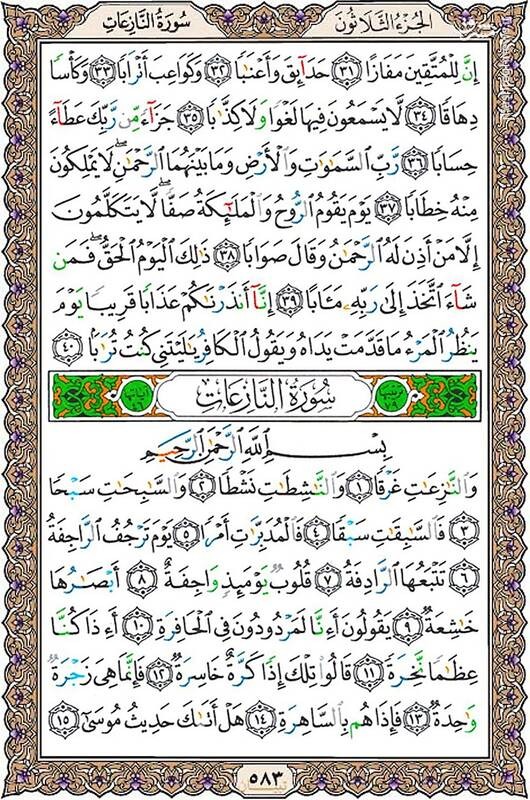 الجزء الثلاثون سورة النازعات
إِنَّ لِلْمُتَّقِينَ مَفَازًا ٣١ حَدَآئِقَ وَأَعْنَٰبًا ٣٢ وَكَوَاعِبَ أَتْرَابًا ٣٣ وَكَأْسًا
دِهَاقًا ٣٤ لَّا يَسْمَعُونَ فِيهَا لَغْوًا وَلَا كِذَّٰبًا ٣٥ جَزَآءً مِّن رَّبِّكَ عَطَآءً
حِسَابًا ٣٦ رَّبِّ السَّمَٰوَٰتِ وَالْأَرْضِ وَمَا بَيْنَهُمَا الرَّحْمَٰنِ ۖ لَا يَمْلِكُونَ
مِنْهُ خِطَابًا ٣٧ يَوْمَ يَقُومُ الرُّوحُ وَالْمَلَٰٓئِكَةُ صَفًّا ۖ لَّا يَتَكَلَّمُونَ
إِلَّا مَنْ أَذِنَ لَهُ الرَّحْمَٰنُ وَقَالَ صَوَابًا ٣٨ ذَٰلِكَ الْيَوْمُ الْحَقُّ ۖ فَمَن
شَآءَ اتَّخَذَ إِلَىٰ رَبِّهِۦ مَـَٔابًا ٣٩ إِنَّآ أَنذَرْنَٰكُمْ عَذَابًا قَرِيبًا يَوْمَ
يَنظُرُ الْمَرْءُ مَا قَدَّمَتْ يَدَاهُ وَيَقُولُ الْكَافِرُ يَٰلَيْتَنِي كُنتُ تُرَٰبًا ٤٠
سُورَةُ النَّازِعَاتِ
بِسْمِ اللَّهِ الرَّحْمَٰنِ الرَّحِيمِ
وَالنَّٰزِعَٰتِ غَرْقًا ١ وَالنَّٰشِطَٰتِ نَشْطًا ٢ وَالسَّٰبِحَٰتِ سَبْحًا
٣ فَالسَّٰبِقَٰتِ سَبْقًا ٤ فَالْمُدَبِّرَٰتِ أَمْرًا ٥ يَوْمَ تَرْجُفُ الرَّاجِفَةُ
٦ تَتْبَعُهَا الرَّادِفَةُ ٧ قُلُوبٌ يَوْمَئِذٍ وَاجِفَةٌ ٨ أَبْصَٰرُهَا
خَٰشِعَةٌ ٩ يَقُولُونَ أَءِنَّا لَمَرْدُودُونَ فِي الْحَافِرَةِ ١٠ أَءِذَا كُنَّا
عِظَٰمًا نَّخِرَةً ١١ قَالُوا تِلْكَ إِذًا كَرَّةٌ خَاسِرَةٌ ١٢ فَإِنَّمَا هِيَ زَجْرَةٌ
وَٰحِدَةٌ ١٣ فَإِذَا هُم بِالسَّاهِرَةِ ١٤ هَلْ أَتَىٰكَ حَدِيثُ مُوسَىٰٓ ١٥
٥٨٣